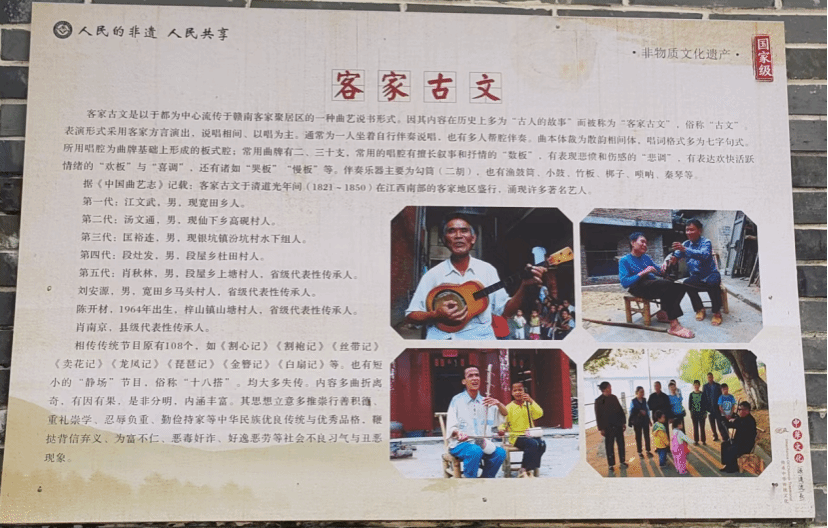 人民的非遗 人民共享
·非物质文化遗产·
国家级
客家古文
客家古文是以于都为中心流传于赣南客家聚居区的一种曲艺说书形式。因其内容在历史上多为“古人的故事”而被称为“客家古文”,俗称“古文”。
表演形式采用客家方言演出,说唱相间、以唱为主。通常为一人坐着自行伴奏说唱,也有多人帮腔伴奏。曲本体裁为散韵相间体,唱词格式多为七字句式。
所用唱腔为曲牌基础上形成的板式腔;常用曲牌有二、三十支,常用的唱腔有擅长叙事和抒情的“数板”,有表现悲愤和伤感的“悲调”,有表达欢快活跃
情绪的“欢板”与“喜调”,还有诸如“哭板”“慢板”等。伴奏乐器主要为勾筒(二胡),也有渔鼓筒、小鼓、竹板、梆子、唢呐、秦琴等。
据《中国曲艺志》记载:客家古文于清道光年间(1821-1850)在江西南部的客家地区盛行,涌现许多著名艺人。
第一代:江文武,男,现宽田乡人。
第二代:汤文通,男,现仙下乡高砚村人。
第三代:匡裕逵,男,现银坑镇汾坑村水下组人。
第四代:段灶发,男,段屋乡杜田村人。
第五代:肖秋林,男,段屋乡上塘村人,省级代表性传承人。
刘安源,男,宽田乡马头村人,省级代表性传承人。
陈开材,1964年出生,梓山镇山塘村人,省级代表性传承人。
肖南京,县级代表性传承人。
相传传统节目原有108个,如《割心记》《割袍记》《丝带记》
《卖花记》《龙凤记》《琵琶记》《金簪记》《白扇记》等。也有短
小的“静场”节目,俗称“十八搭”。均大多失传。内容多曲折离
奇,有因有果,是非分明,内涵丰富。其思想立意多推崇行善积德、
重礼崇学、忍辱负重、勤俭持家等中华民族优良传统与优秀品格,鞭
挞背信弃义、为富不仁、恶毒奸诈、好逸恶劳等社会不良习气与丑恶
现象。
中华文化
源远流长